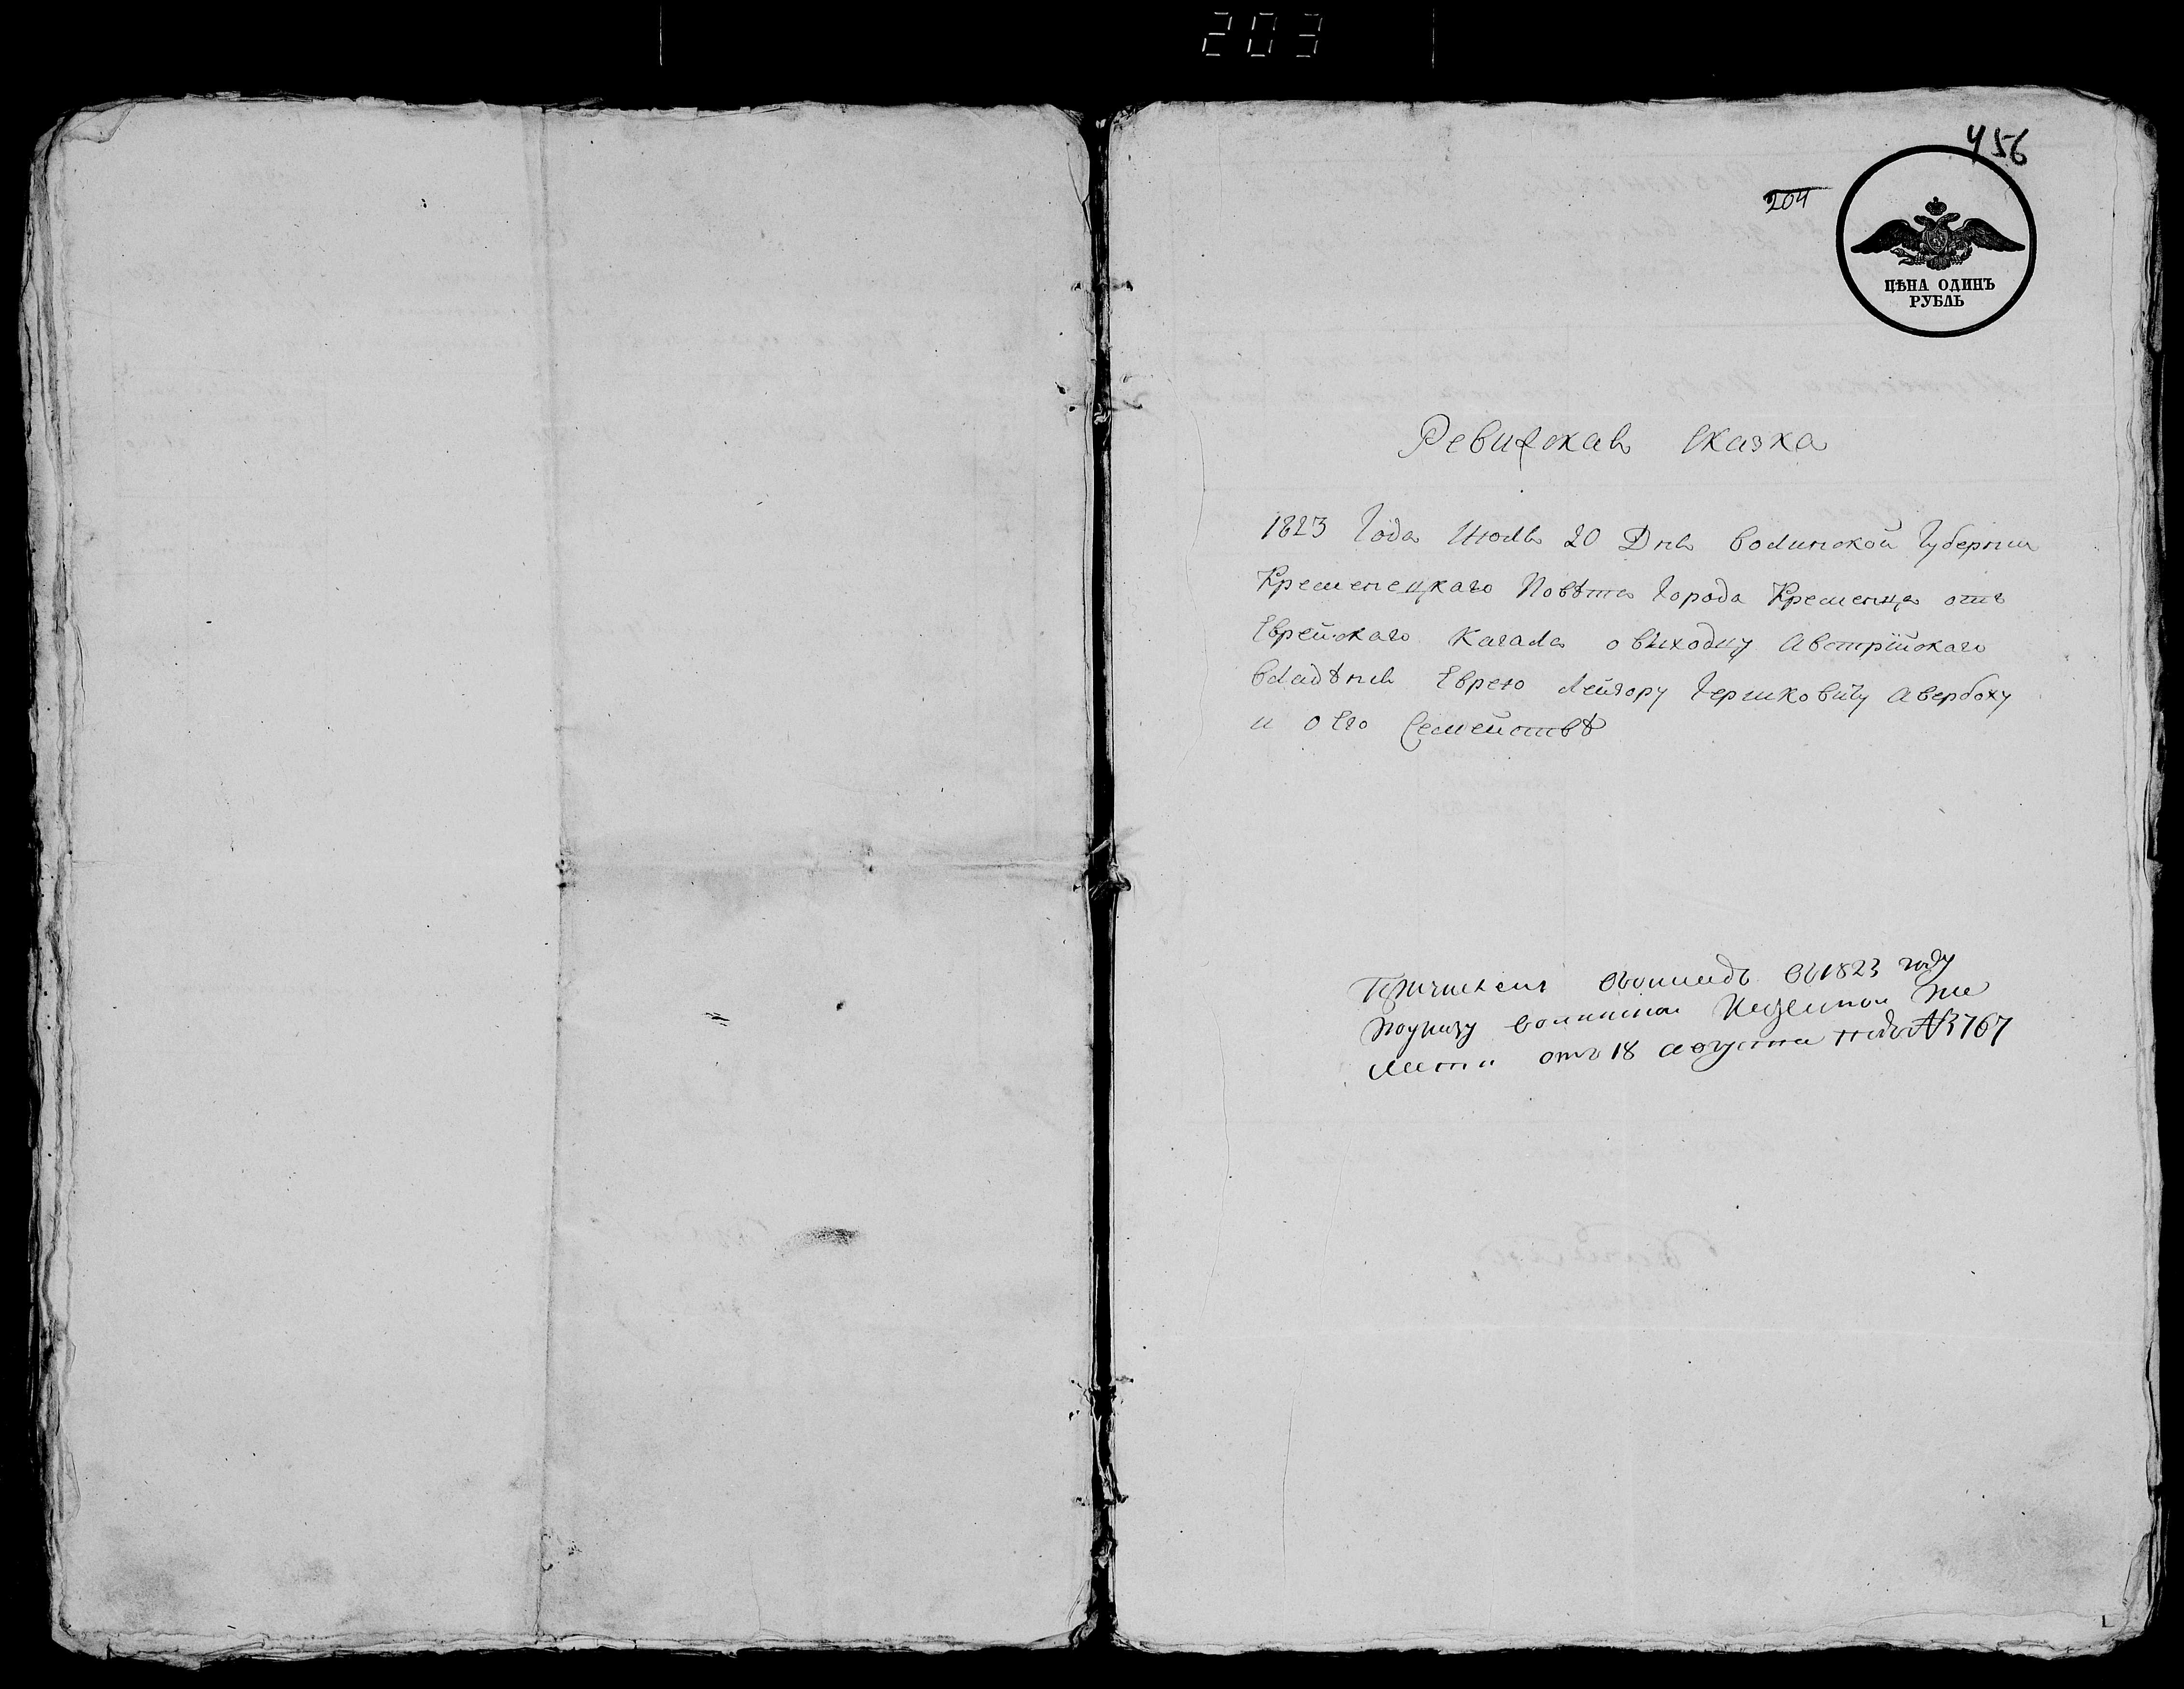 203
456
204
ЦѢНА ОДИНЪ
РУБЛЬ
Ревижскаѧ Сказка
1823 Года Июлѧ 20 Днѧ Волинской Губернии
Кременецкаго Повѣта Города Кременца отъ
Еврейскаго Кагала о выходцу Австрійскаго
владѣниѧ Еврею Лейзору Гершковичу Авербоху
и о Его Семействѣ
въ 1823 году
по указу волинской казенной
от 18 августа под № 3767